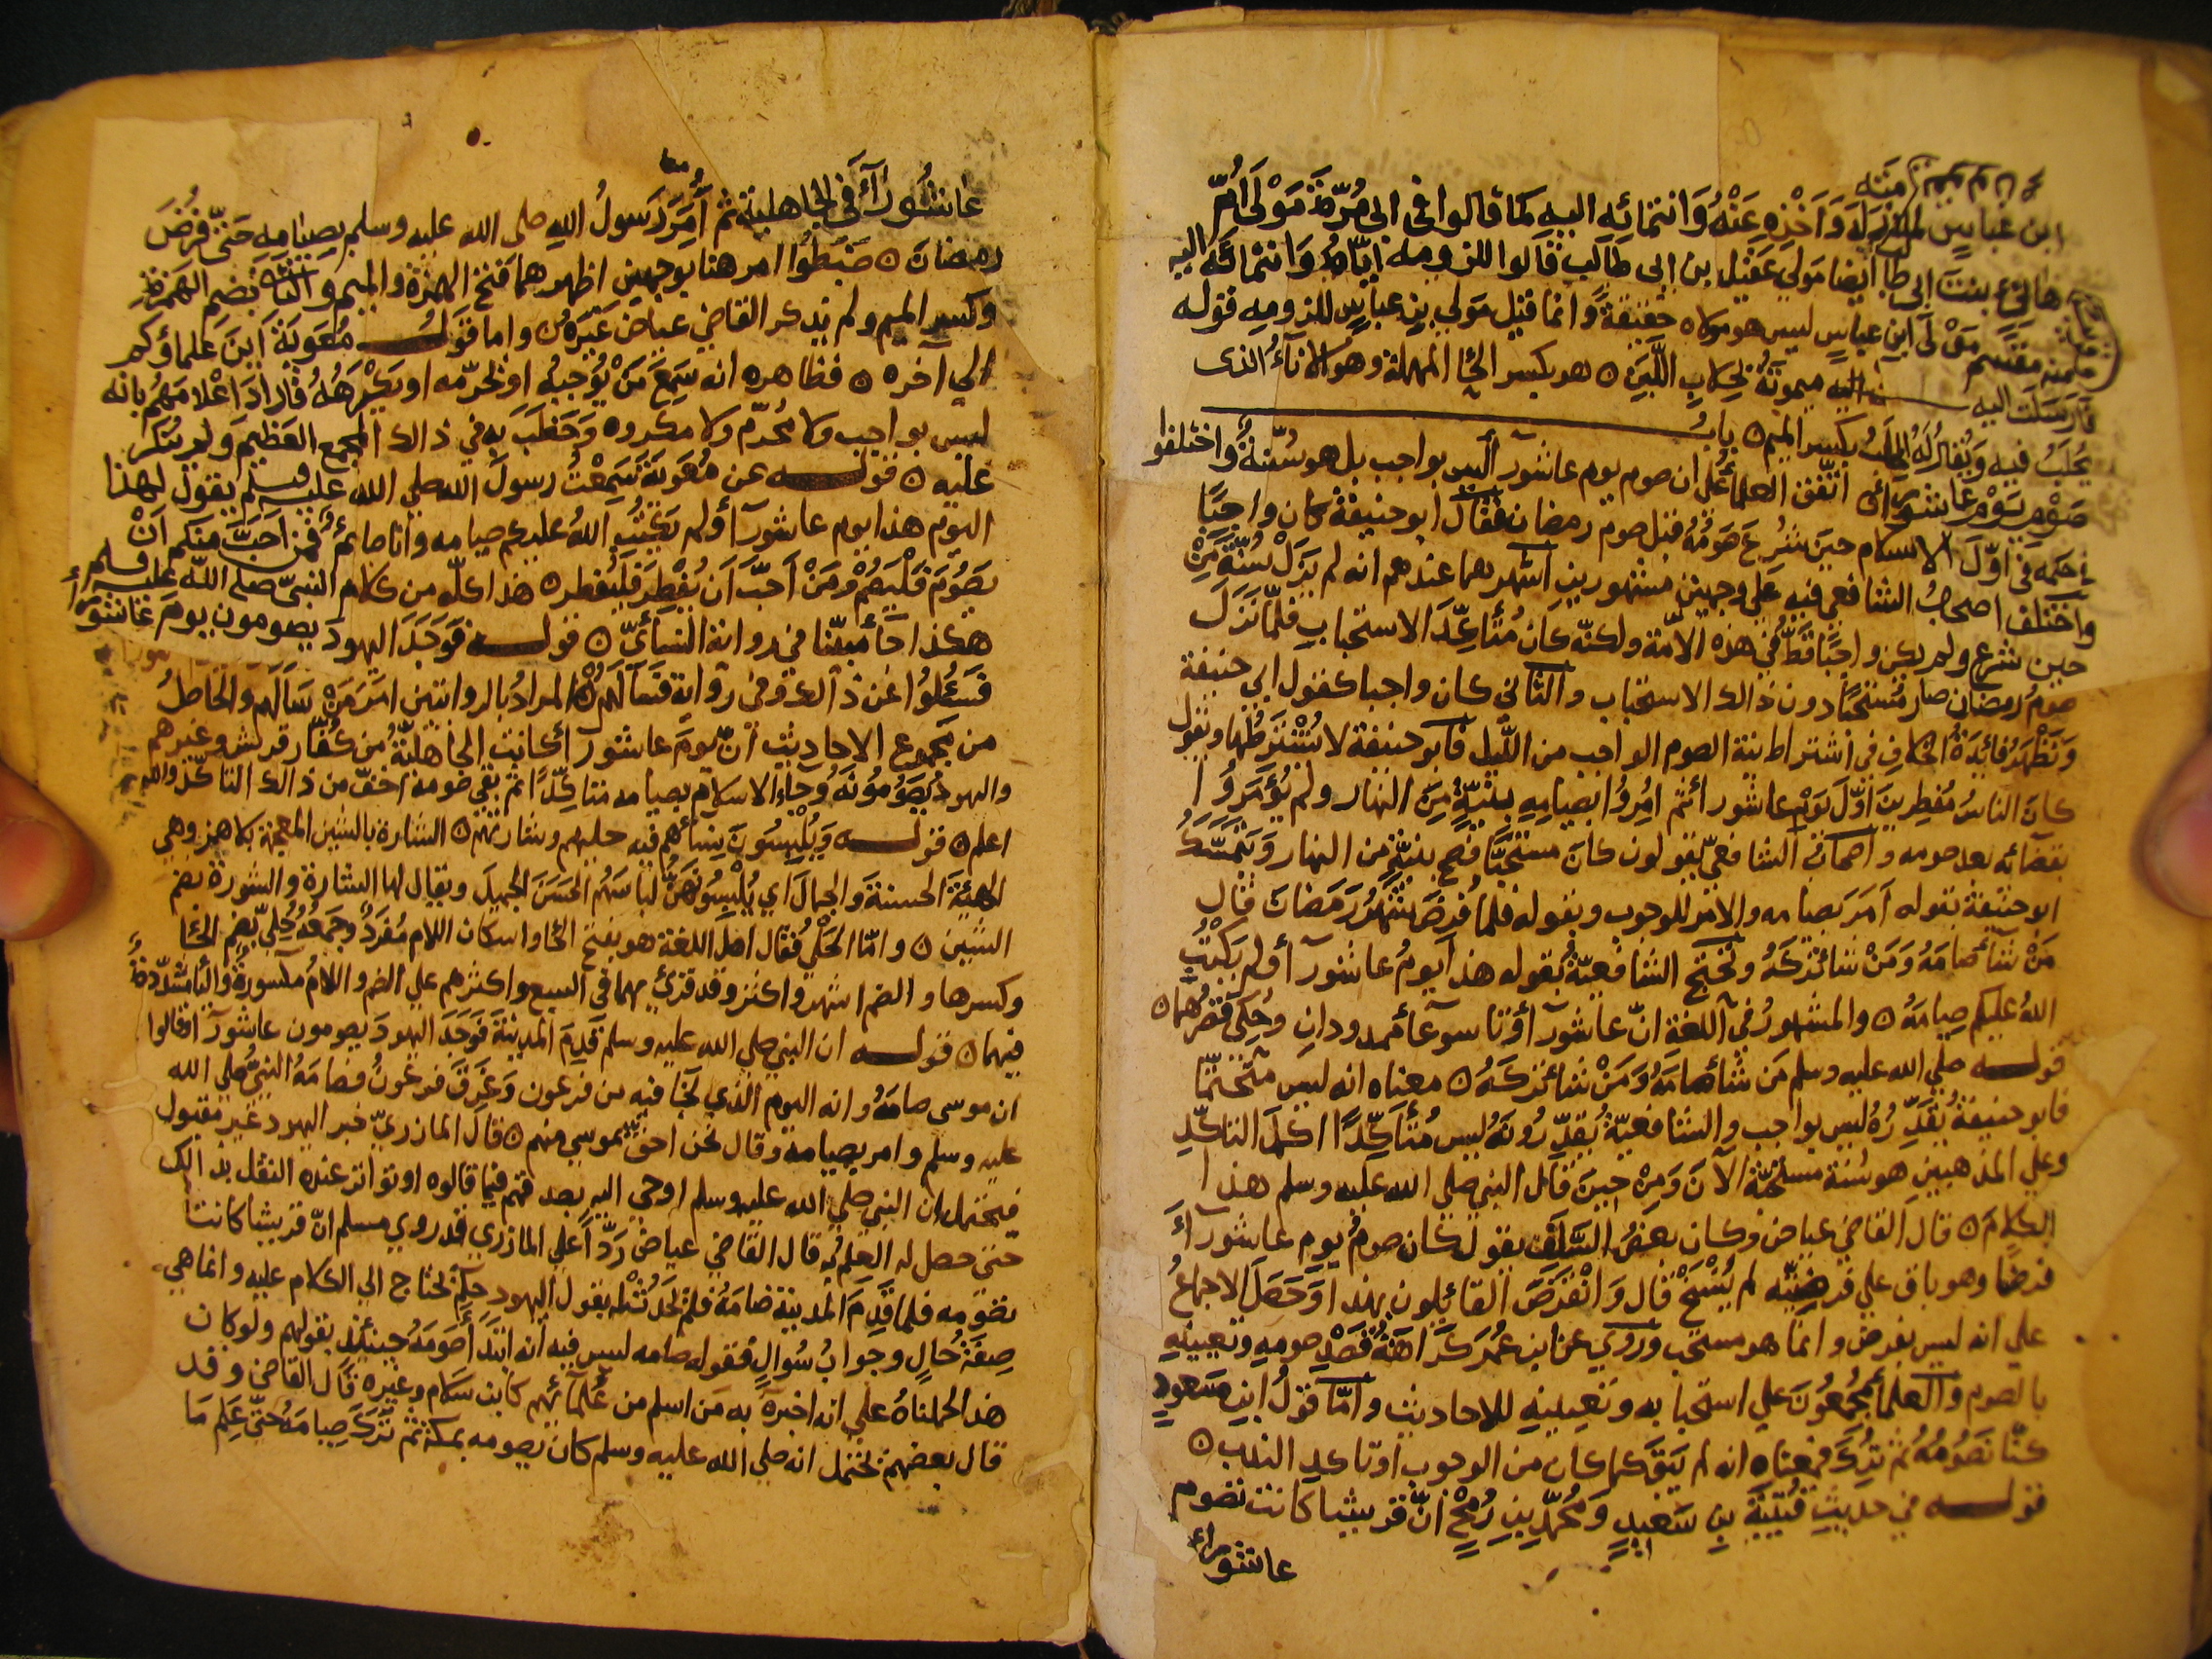 ابن عباس لملازمته له وَاَخْذِهِ عَنْهُ وَانتمائه اليه كما قالوا في ابى مُرَّةَ مَوْلَى اُمّ
هانئ بنت ابى طالب ايضا مولى عَقيل بن ابى طالب قالوا للزومه اياه وانتمائه اليه
مقسم مَوْلَى ابن عباس ليس هو مولاه حقيقة وانما قيل مولى بن عباس للزومه قوله
فارسلت اليه ميمونة بحلاب اللبن ٥ هو بكسر الحا المهملة وهو الاناء الذى
يُحلبُ فيه ويُقال له المحلب بكسر الميم ٥ باب
صَوْم يَوْم عاشورآئ اتّفق العلمأ على ان صوم يوم عاشورآ أليس بواجب بل هو سُنّة واختلفوا
في حكمه فى اوّل الاسلام حين شُرع صَوْمُهُ قبل صوم رمضان فقال ابو حنيفة كان واجبًا
واختلف اصحابُ الشافعى فيه على وجهين مشهورين اشهرهما عندهم انه لم يَزَلْ سُنّةً مِن
حين شُرع ولم يكن واجبًا قطّ في هذه الامّة ولكنّه كان مُتَأكّدَ الاستحباب فلمّا نَزَلَ
صومُ رمضان صار مُستحبًا دون ذالك الاستحباب والثاني كان واجبا كقول ابي حنيفة
وَتَظْهَرُ فائِدَةُ الخلاف في اشتراط نية الصوم الواجب من اللّيل فابو حنيفة لا يَشْتَرطُها ويقول
كان الناسُ مُفطِرينَ اوّل يَوْم عاشورا أثم اُمِرُوا بصيامِهِ بنيّةٍ مِنَ النهار ولم يُؤمَروُا
بقضائه بعد صومه واصحاب الشافعيّ يقولون كان مستحبًّا فصح بنيّةٍ من النهار وَيَتَمَسّكُ
ابو حنيفة بقوله اَمَرَ بصيامه والامر للوجوب وبقوله فلما فُرضَ شهْرُ رَمَضانَ قال
مَنْ شآء صَامَهُ وَمَنْ شا تركَهُ ويحتج الشافعيّةُ بقوله هذا يومُ عاشورآ أولم يَكْتُبِ
اللهُ عليكم صِيامَهُ ٥ والمشهورُ فى اللغة انّ عاشورآ أوتاسوعآ أممدودانِ وحُكِىَ قَصْرُهما ٥
قولـــه صلى الله عليه وسلم مَن شأصَامَهُ وَمَنْ شا تركَهُ ٥ معناه انه ليس متَحتّمًا
فابو حنيفةُ يُقَدِّرُهُ ليس بواجب والشافعيّةُ يُقدِّرُونَهُ ليس مُتَأكِّدًا اكملَ التاكّدِ
وعلي المذهبين هو سُنة مستحبّة الآنَ وَمِنْ حِينَ قال النبي صلى الله عليه وسلم هذا
الكلامَ ٥ قال القاضي عياض وكان بعضُ السَّلَفِ يقول كان صومُ يوم عاشورآ أَ
فرضًا وهو باق علي فرضيّته لم يُنْسَخْ قال وَانْقَرَضَ القائلون بهذا وَحَصَلَ الاجماعُ
علي انه ليس بفرض وانما هو مستحب وَرُوِيَ عن ابن عُمَر كَرَاهَةُ قَصْدِ صومِهِ وتعيينِهِ
بالصوم والعلمأ مُجْمِعُونَ علي استحبابه وتعيينِهِ للاحاديث وامّا قَوْلُ ابنِ مسعودٍ
كنّا نَصُومُهُ ثم تُرِكَ فمعناه انه لم يَبْقَ كما كان من الوجوب او تاكد الندب ٥
قولـــه في حديث قُتَيْبَةَ بنِ سَعيدٍ وَمُحَمّد بنِ رُمْحٍ انّ قريشا كانت تصوم
عاشورآء
عاشُورَآءَ فى الجاهلية ثم اُمِرَ رَسولُ الله صلى الله عليه وسلم بِصِيَامِهِ حَتىّ فُرِضَ
رمضان ٥ ضَبَطُوا امر هنا بوجهين اظهرهما فتح الهمزة والميم والثانى بضم الهمزة
وكسر الميم ولم يذكر القاضي عياض غَيْرَهُ ٥ واما قَولـــه مُعوية اَيْنَ عَلماؤكم
الي آخره ٥ فظاهره انه سَمِعَ مَنْ يُوجبهُ او يُحَرّمه او يَكْرَهُهُ فأرادَ اعْلامَهُم بانه
ليس بواجب ولا مُحَرّم ولا مكروه وَخَطَبَ بِهِ في ذالك الجمع العَظيم ولم يُنْكَر
عليه ٥ قولـــه عن مُعَوِيَةَ سَمِعْتُ رسول الله صلي الله عليه وسلم يقول لهذا
اليوم هذا يوم عاشورآ أولم يَكْتُبِ اللهُ عليكم صيامه وانا صائمٌ فَمَن اَحَبَّ منكم اَنْ
يَصُومَ فَلْيَصُمْ وَمَنْ اَحَبّ اَن يُفْطِرَ فَلْيُفطر ٥ هذا كلّه من كلام النبيّ صلي الله عليه وسلم
هكذا جآ أمبيّنا في رواية النسأىّ ٥ قولـــه فَوَجَدَ اليهودَ يصومون يوم عاشورآ أ
فَسُئلُوا عن ذالك وفى رواية فَسَألَهُمْ ٥ المرادُ بالروايتين امَرَ مَنْ سَألَهم والحَاصِلُ
من مجموع الاحاديث أنّ يومَ عاشورآ أكانت الجاهليّةُ من كُفّار قريش وغيرهم
واليهودُ يَصُومُونَهُ وَجَاء الاسلام بصيامه متاكِّدًا ثم بقى صَومُه اخفّ من ذالك التاكّد والله
اعلم ٥ قولـــه وَيُلْبِسُونَ نِسَأهم فيه حليهم وشارَتَهُم ٥ الشارة بالشين المعجمة بلا همز وهي
الهيئة الحسنة والجمال اي يُلْبِسُونَهنّ لبَاسَهُم الحَسَن الجميل ويقال لها الشارة والشورة بضم
الشين ٥ وامّا الحَلْيُ فقال اهل اللغة هو بفتح الحا واسكان اللام مُفرَدٌ وَجَمْعُهُ حُلِيّ بضم الحا
وكسرها والضم اشهر واكثر وقد قرئ بهما في السبع واكثرهم علي الضم واللامُ مكسورةٌ واليا مشدّدةٌ
فيهما ٥ قولـــه ان النبي صلي الله عليه وسلم قَدِمَ المدينة فَوَجَدَ اليهودَ يصومون عاشورآ أوقالوا
ان موسى صامَهُ وانه اليوم الذي نجّا فيه من فرعون وَغَرِقَ فرعَوْنُ فصامَهُ النبيُّ صلي الله
عليه وسلم وامر بصيامه وقال نحن احق بموسي منهم ٥ قال المازريّ خبر اليهود غير مقبول
فيحتمل ان النبي صلي الله عليه وسلم اوحى اليه بصدقهم فيما قالوه او تواتر عنده النقل بذالك
حتى حصل له العلمُ به قال القاضي عياض رَدًّا علي المازري قد روي مسلم انّ قريشا كانت
تصومه فلما قَدِمَ المدينة صامَهُ فلم يَحْدُثْ له بقول اليهود حُكم يحتاج الي الكلام عليه وانما هي
صِفَةُ حَالٍ وجوابُ سُوالٍ فقوله صامه ليس فيه انه ابتدأ صَومَهُ حينئذ بقولهم ولو كان
هذا لحملناهُ علي انه اخبرَهُ به مَن اسلم من عُلمآئهم كابن سَلام وغيره قال القاضى وقد
قال بعضهم يحتمل انه صلي الله عليه وسلم كان يصومه بمكة ثم تَرَكَ صِيامَهُ حتّى عَلِم مَا